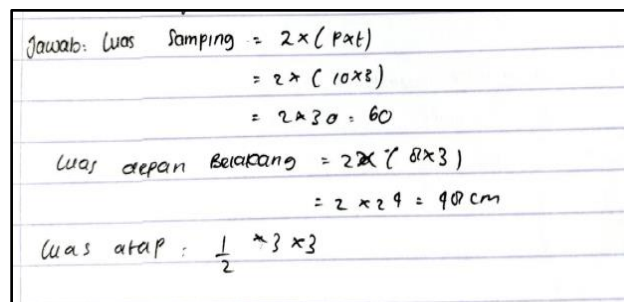 Jawab: Luas Samping = 2 × (p×t)
= 2 × (10×3)
= 2 × 30 = 60
Luas depan Belakang = 2 × (8×3)
= 2 × 24 = 48 cm
Luas atap : 1/2 × 3 × 3